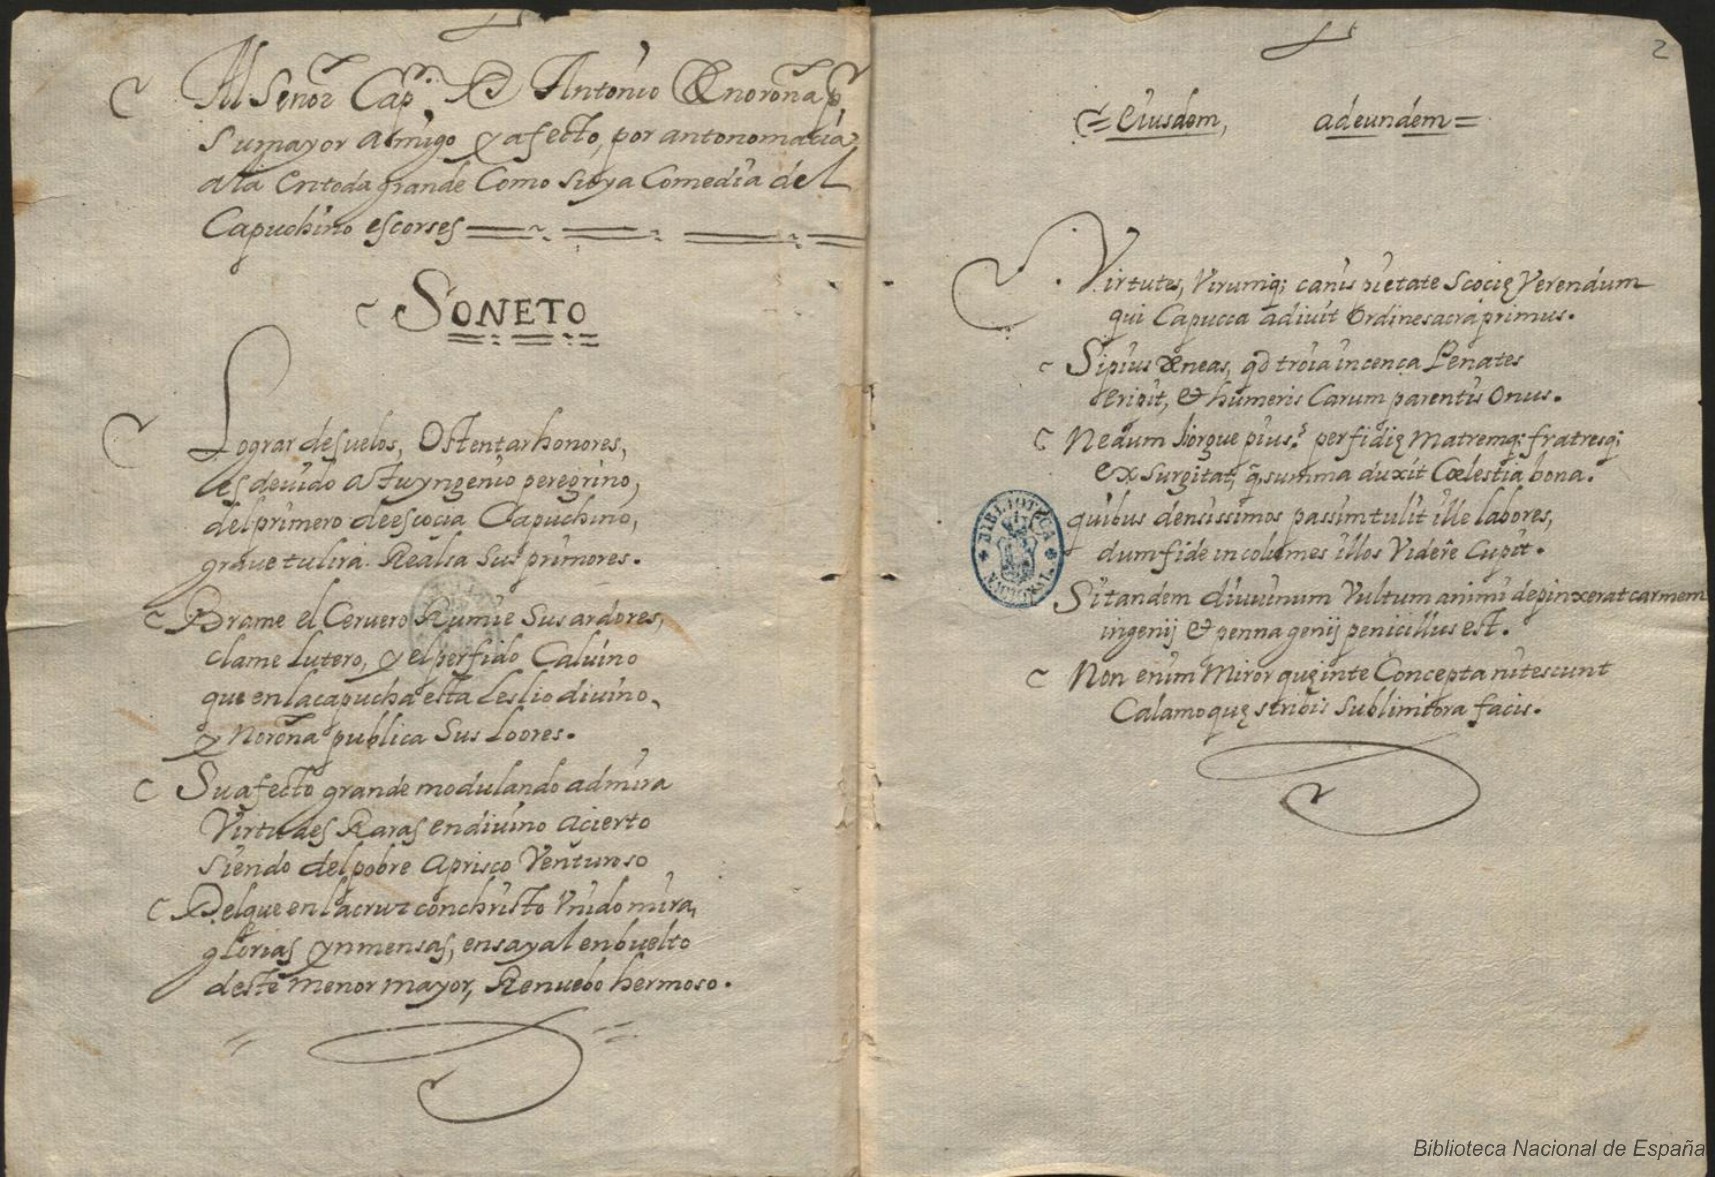 Al Señor Cap.n D Antonio Enoroña p.r
Su mayor amigo y afecto, por antonomacia,
a la entoda grande Como suya Comedia del
Capuchino escorses
SONETO
Lograr desuelos, Ostentar honores,
es deuido a tu yngenio peregrino,
del primero de escocia Capuchino,
graue tu lira Realsa Sus primores.
Brame el Ceruero Rumie Sus ardores,
clame Lutero, y el perfido Caluino
que en la capucha esta Leslio diuino,
y Noroña publica Sus Loores.
Su afecto grande modulando admira
Virtudes Raras en diuino acierto
siendo del pobre aprisco Venturoso
Del que en la cruz con christo Vnido mira,
glorias ynmensas, en sayal enbuelto
deste menor mayor, Renuebo hermoso.
2
Eiusdem, ad eundem
Virtutes, Virumq; canis pietate Scocię Verendum
qui Capucca adiuit Ordine sacra primus.
Si pius Æneas, qd troia incença Penates
eripit, & humeris Carum parentis Onus.
Nedum Iorgue pius? perfidię Matremq; fratresq;
exsurgitat, q summa duxit Cœlestia bona.
quibus densissimos passim tulit ille labores,
dum fide incolumes illos Videre Cupit.
Si tandem diuuinum Vultum animi depinxerat carmem
ingenij & penna genij penicillus est.
Non enim Miror quę in te Concepta nitescunt
Calamo quę stribis Sublimiora facis.
BIBLIOTECA NACIONAL
Biblioteca Nacional de España